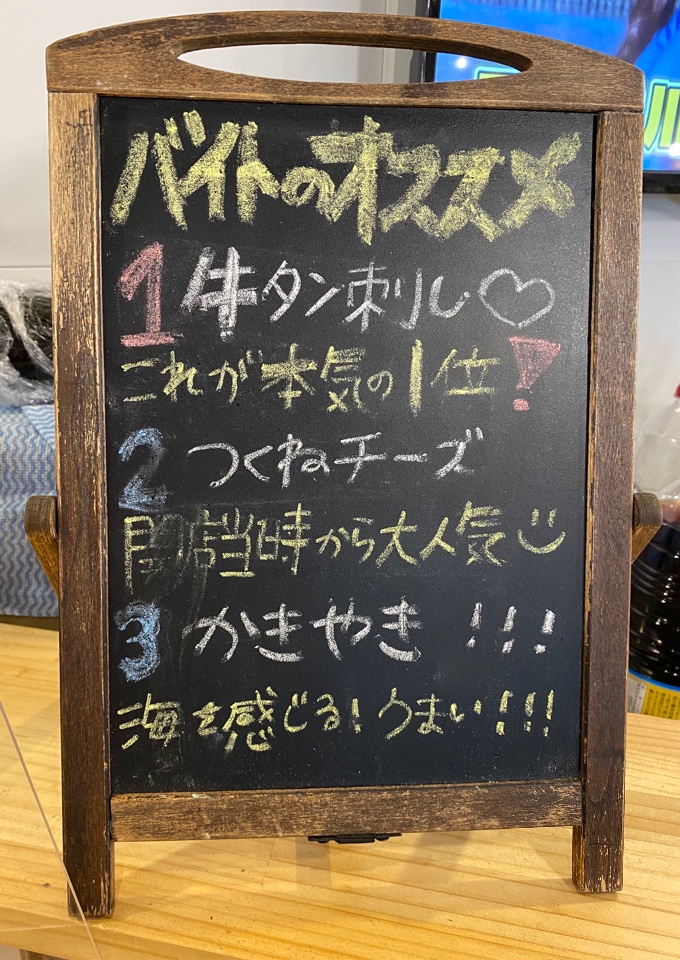 バイトのオススメ
1 牛タン刺し♡
これが本気の1位!
2 つくねチーズ
開店当時から大人気
3 かきやき!!!
海を感じる!うまい!!!